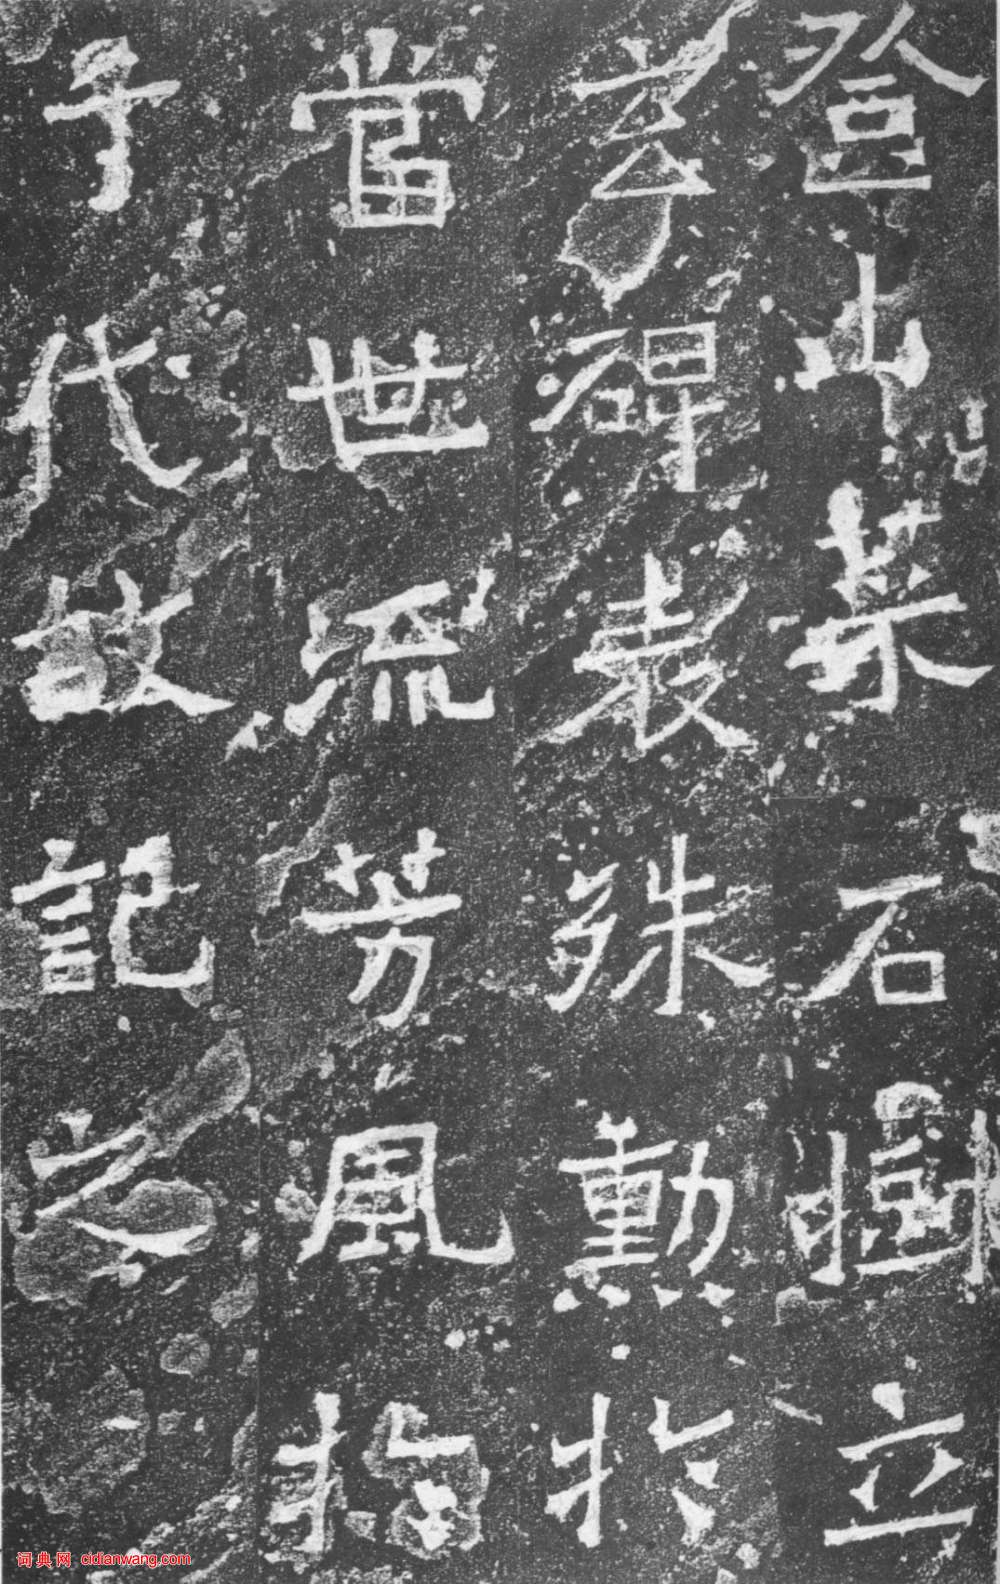 登山采石樹立
玄碑表殊勳於
當世流芳風於
千代故記之
词典网 cidianwang.com